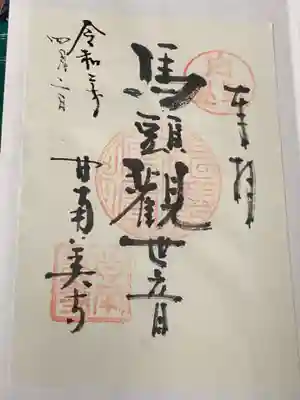 奉拝
馬頭觀世音
甘南美寺
令和二年
四月二日